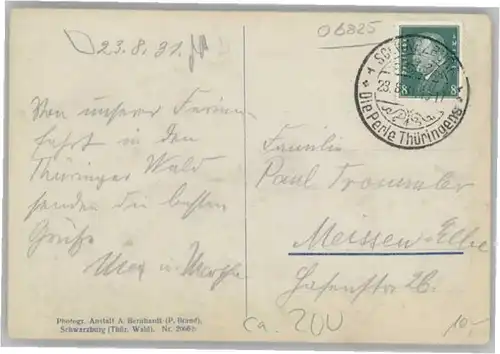 23.8.31.
06825
8 8
23.8
Die Perle Thüringens
Von unserer Ferien-
fahrt in den
Thüringer Wald
senden die besten
Grüße
Familie
Paul Trommler
Meissen-Elbe
Hafenstraße 26.
Photogr. Anstalt A Bernhardt (P. Brand),
Schwarzburg (Thür. Wald). Nr.
ca. 200
10.-